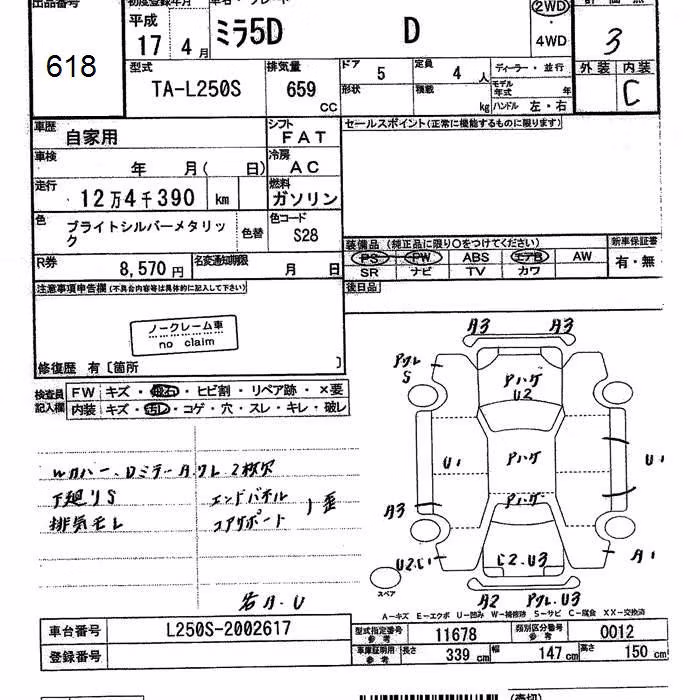 出品番号 初度登録年月 車名・グレード 評価点
618 平成 17 4月 ミラ5D D 2WD ・ 4WD 3
型式 排気量 ドア 5 定員 4人 ディーラー・並行 外装 内装
TA-L250S 659 cc 形状 積載 kg モデル年式 年 ハンドル 左・右 C
車歴 自家用 シフト FAT セールスポイント(正常に機能するものに限ります)
車検 年 月( 日) 冷房 AC
走行 12万4千390 km 燃料 ガソリン
色 ブライトシルバーメタリック 色替 色コード S28
装備品(純正品に限り○をつけてください) 新車保証書
R券 8,570円 名変通知期限 月 日 PS PW ABS エアB AW 有・無
SR ナビ TV カワ
注意事項申告欄(不具合内容等は具体的に記入して下さい) 後日品
ノークレーム車
no claim
修復歴 有〔箇所 〕
検査員記入欄 FW キズ・飛石・ヒビ割・リペア跡・×要
内装 キズ・汚し・コゲ・穴・スレ・キレ・破レ
A3 A3
アクレ S
アハゲ U2
U1 アハゲ U1
アハゲ
A3
U2.C1 C2.U3 A1
A2 アクレ.U3
スペア
Wカバー、Dミラー
下廻りS エンドパネル
排気モレ コアサポート 歪
若A.U
A-キズ E-エクボ U-凹み W-補修跡 S-サビ C-腐食 XX-交換済
車台番号 L250S-2002617 型式指定番号 参考 11678 類別区分番号 参考 0012
登録番号 車庫証明用 参考 長さ 339cm 幅 147cm 高さ 150cm
(売切)